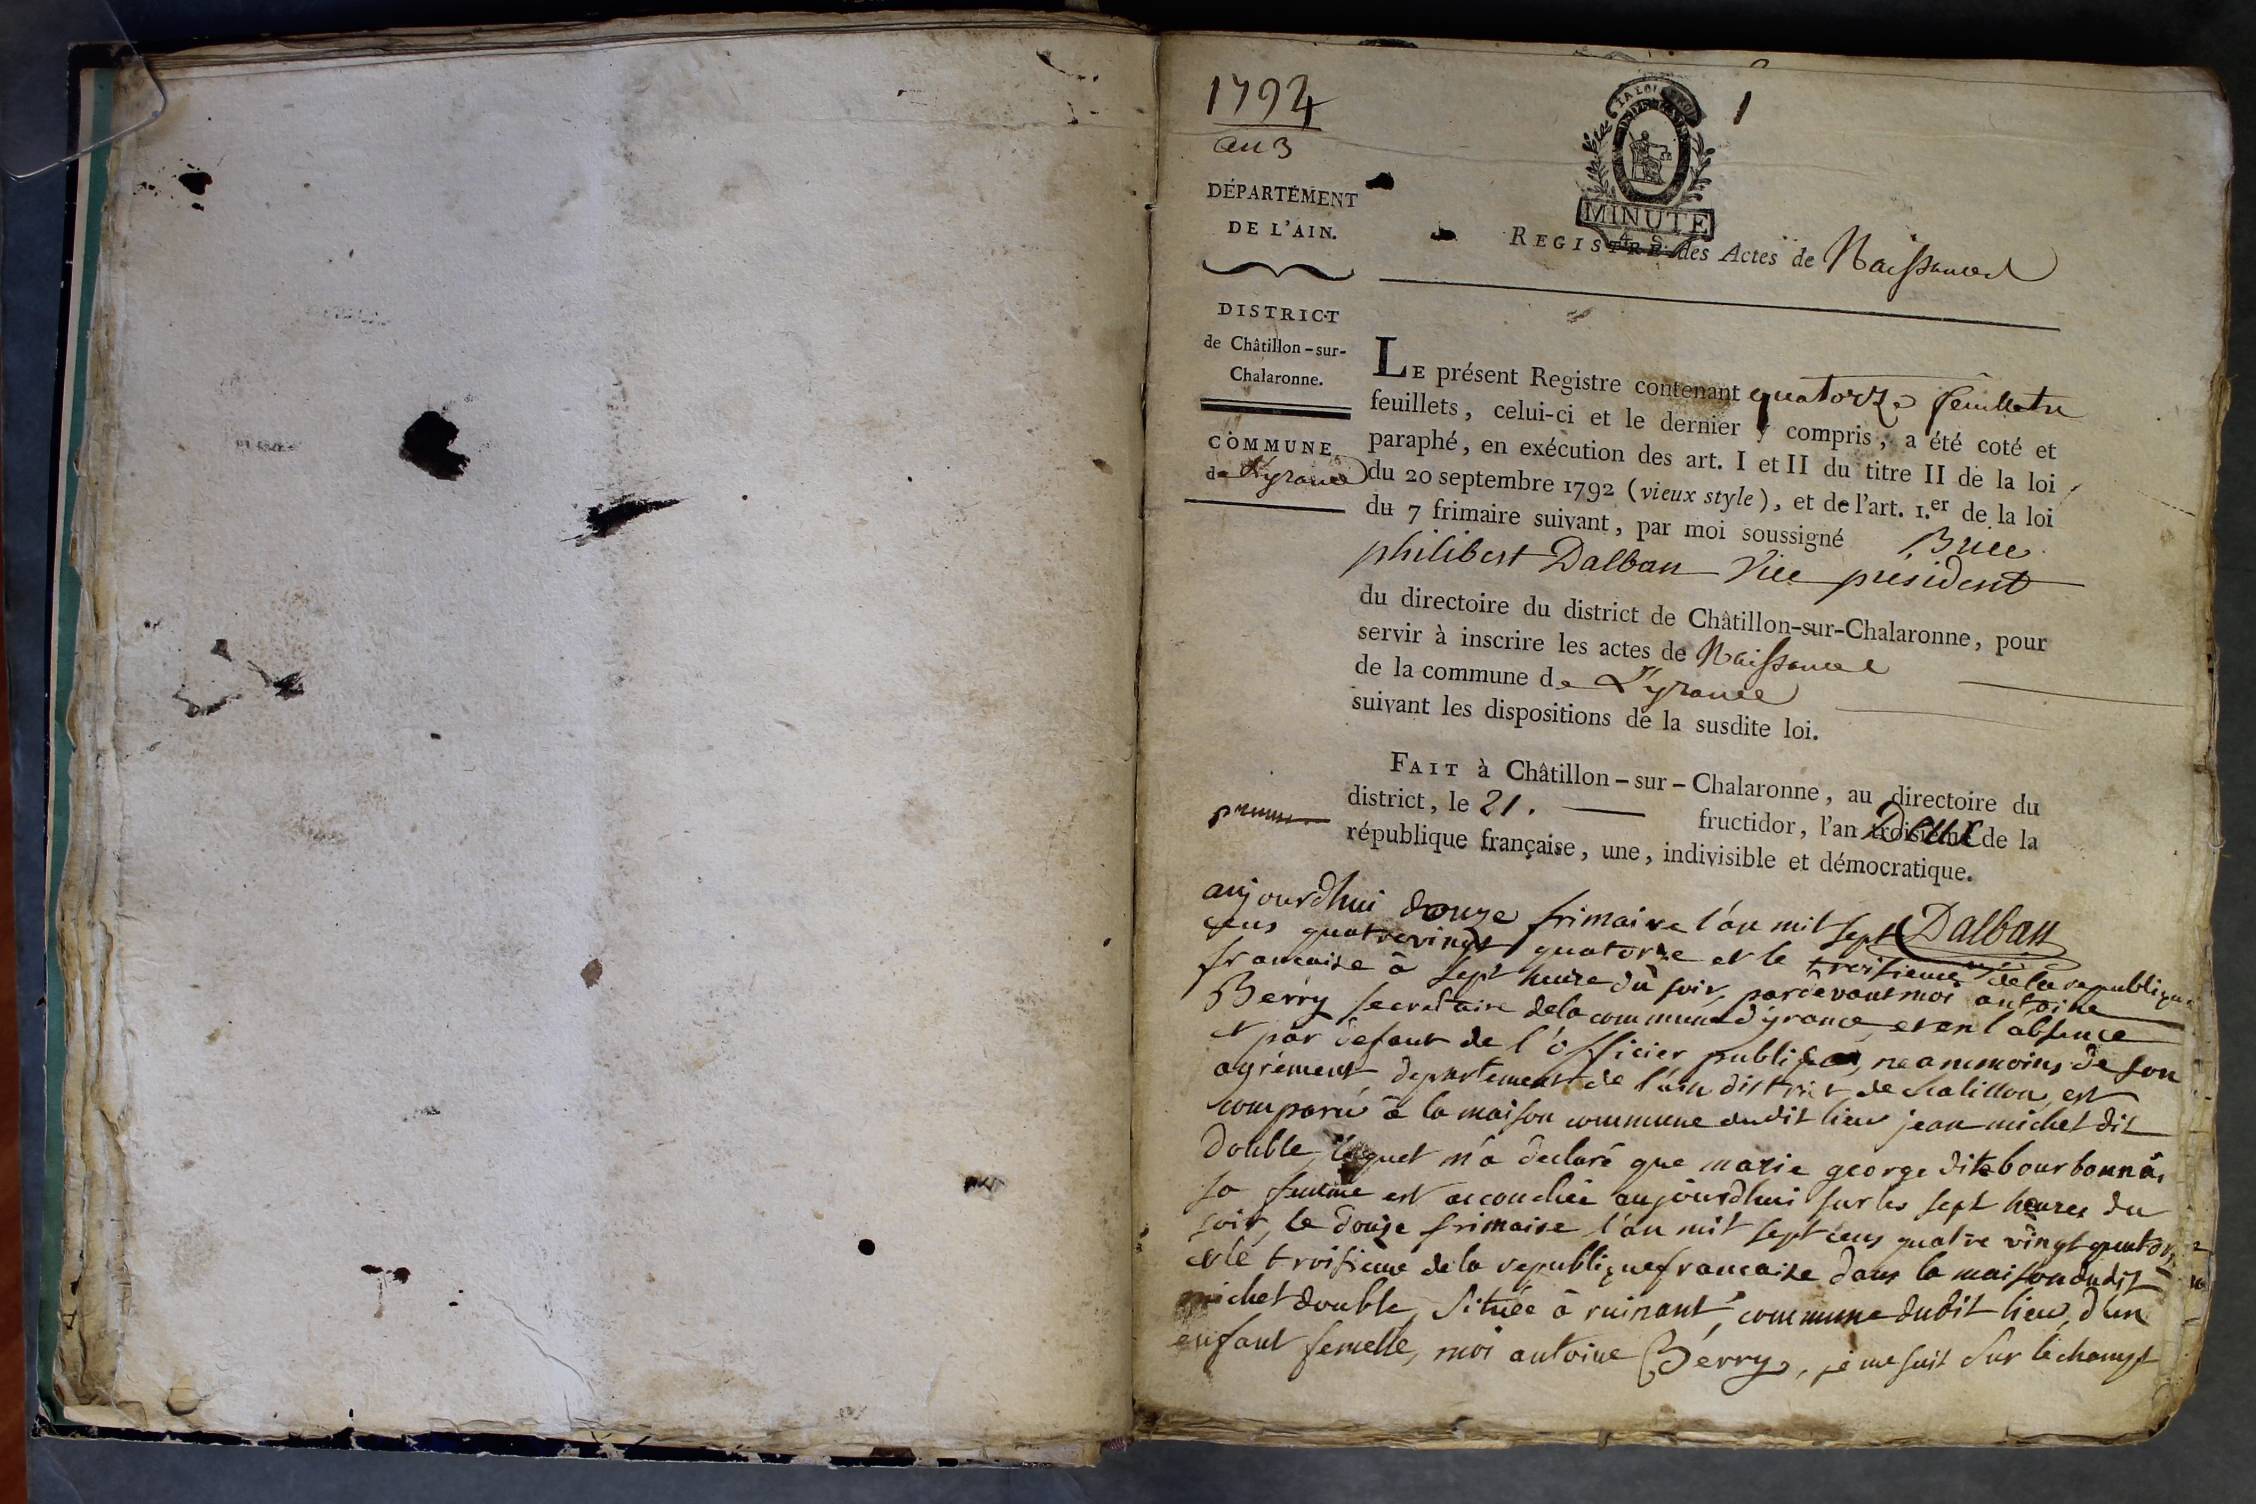 1794
an 3
1
LA LOI
MINUTE
4 S
DÉPARTEMENT
DE L'AIN.
REGISTRE des Actes de Naissances
DISTRICT
de Châtillon-sur-
Chalaronne.
COMMUNE
de L'yrance
LE présent Registre contenant quatorze feuillets
feuillets, celui-ci et le dernier y compris, a été coté et
paraphé, en exécution des art. I et II du titre II de la loi
du 20 septembre 1792 (vieux style), et de l'art. 1.er de la loi
du 7 frimaire suivant, par moi soussigné
philibert Dalban Vice président
du directoire du district de Châtillon-sur-Chalaronne, pour
servir à inscrire les actes de Naissance
de la commune de L'yrance
suivant les dispositions de la susdite loi.
FAIT à Châtillon-sur-Chalaronne, au directoire du
district, le 21. fructidor, l'an troisième Deux de la
république française, une, indivisible et démocratique.
Dalban
aujourdhui douze frimaire l'an mil sept
cens quatrevingt quatorze et le troisieme de la republique
francaise à sept heure du soir pardevant moi antoine
Bérry secretaire de la commune d'yrance et en l'absence
et par defaut de l'officier public, neanmoins de son
agrément, departement de l'ain district de chatillon, est
comparu à la maison commune dudit lieu jean michet dit
Double, lequel m'a declaré que marie george dite bourbonnas
sa femme est accouchée aujourdhui sur les sept heures du
soir, le douze frimaire l'an mil sept cens quatre vingt quatorze
et le troisieme de la republique francaise dans la maison dudit
michet double, située à ruinant, commune dudit lieu, d'un
enfant femelle, moi antoine Bérry, je me suis sur le champt